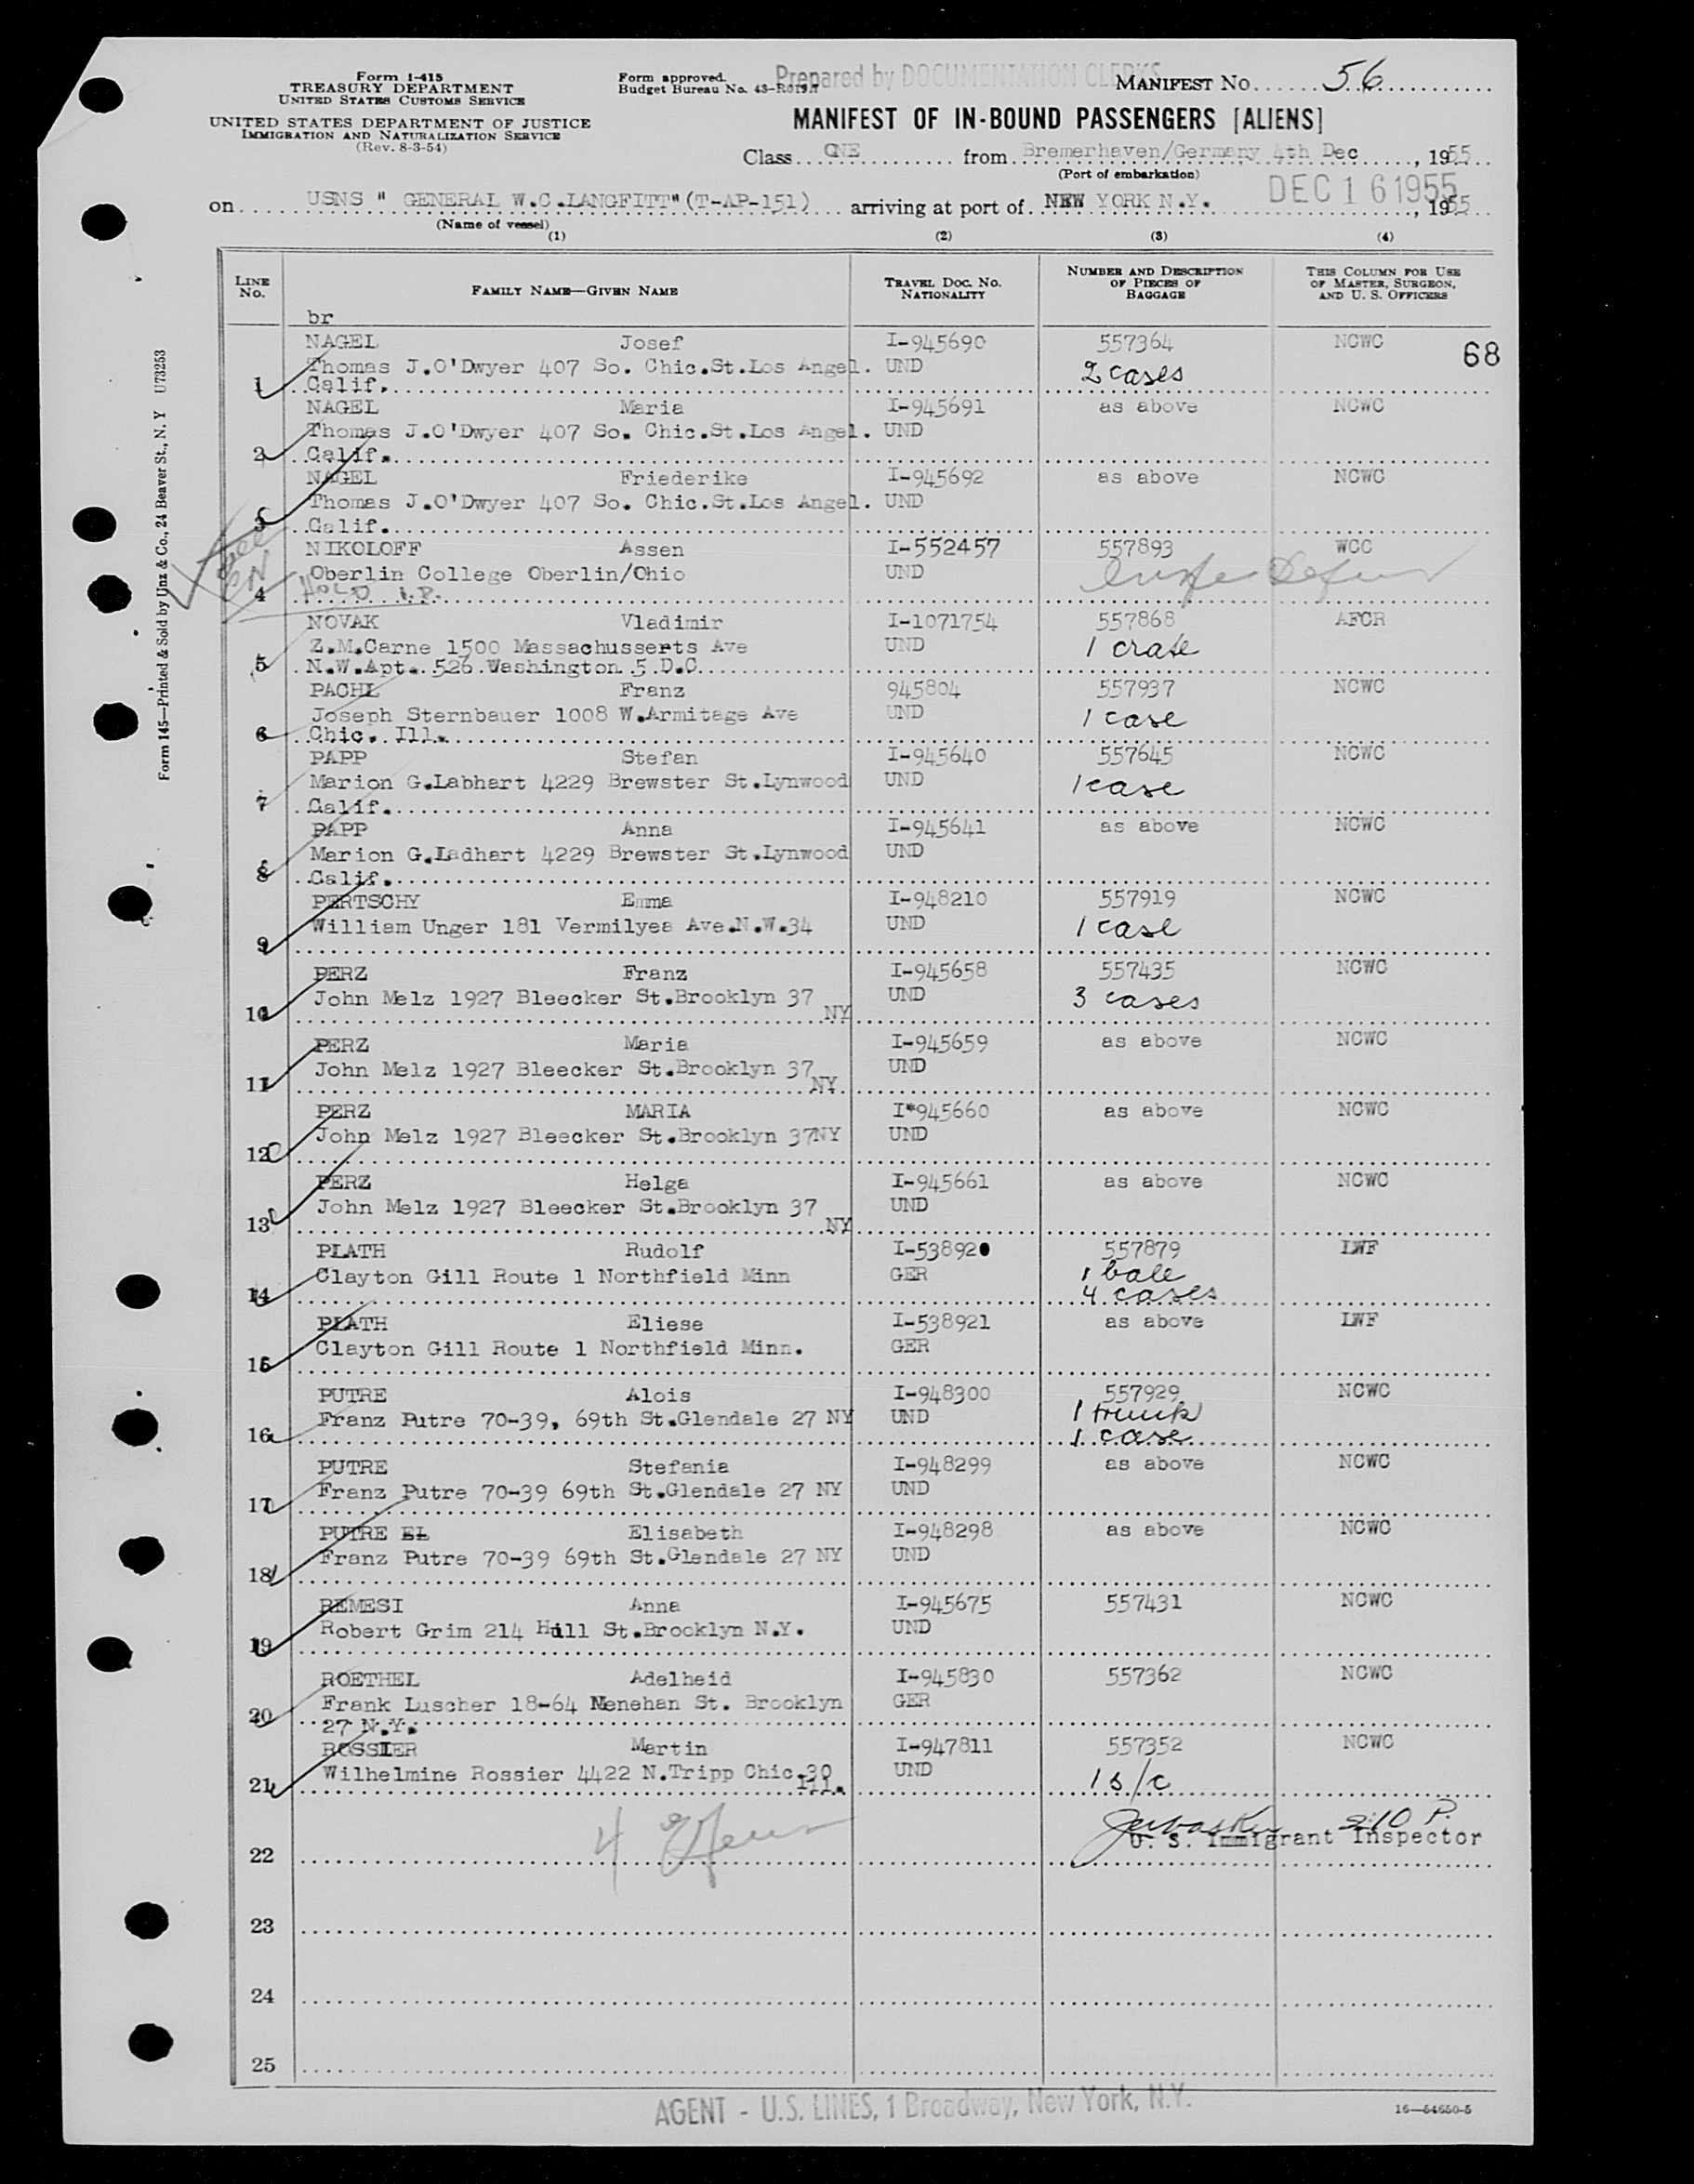 Form I-415
TREASURY DEPARTMENT
UNITED STATES CUSTOMS SERVICE
UNITED STATES DEPARTMENT OF JUSTICE
IMMIGRATION AND NATURALIZATION SERVICE
(Rev. 8-3-54)
Form approved.
Budget Bureau No. 43-R019.7
Prepared by DOCUMENTATION CLERKS
MANIFEST NO. 56
MANIFEST OF IN-BOUND PASSENGERS [ALIENS]
Class ONE from Bremerhaven/Germany 4th Dec, 1955
(Port of embarkation)
DEC 16 1955
on USNS " GENERAL W.C.LANGFITT"(T-AP-151) arriving at port of NEW YORK N.Y., 1955
(Name of vessel)
(1) (2) (3) (4)
LINE NO. FAMILY NAME—GIVEN NAME TRAVEL DOC. NO. NATIONALITY NUMBER AND DESCRIPTION OF PIECES OF BAGGAGE THIS COLUMN FOR USE OF MASTER, SURGEON, AND U. S. OFFICERS
br
NAGEL Josef I-945690 557364 NCWC 68
Thomas J.O'Dwyer 407 So. Chic.St.Los Angel. UND 2 cases
1 Calif.
NAGEL Maria I-945691 as above NCWC
Thomas J.O'Dwyer 407 So. Chic.St.Los Angel. UND
2 Calif.
NAGEL Friederike I-945692 as above NCWC
Thomas J.O'Dwyer 407 So. Chic.St.Los Angel. UND
3 Calif.
NIKOLOFF Assen I-552457 557893 WCC
Oberlin College Oberlin/Ohio UND
4 HOLD
NOVAK Vladimir I-1071754 557868 AFCR
Z.M.Carne 1500 Massachusserts Ave UND 1 crate
5 N.W.Apt. 526 Washington 5 D.C.
PACHL Franz 945804 557937 NCWC
Joseph Sternbauer 1008 W.Armitage Ave UND 1 case
6 Chic. Ill.
PAPP Stefan I-945640 557645 NCWC
Marion G.Labhart 4229 Brewster St.Lynwood UND 1 case
7 Calif.
PAPP Anna I-945641 as above NCWC
Marion G.Ladhart 4229 Brewster St.Lynwood UND
8 Calif.
PERTSCHY Emma I-948210 557919 NCWC
William Unger 181 Vermilyea Ave.N.W.34 UND 1 case
9
PERZ Franz I-945658 557435 NCWC
John Melz 1927 Bleecker St.Brooklyn 37 NY UND 3 cases
10
PERZ Maria I-945659 as above NCWC
John Melz 1927 Bleecker St.Brooklyn 37 NY UND
11
PERZ MARIA I*945660 as above NCWC
John Melz 1927 Bleecker St.Brooklyn 37NY UND
12
PERZ Helga I-945661 as above NCWC
John Melz 1927 Bleecker St.Brooklyn 37 NY UND
13
PLATH Rudolf I-538920 557879 LWF
Clayton Gill Route 1 Northfield Minn GER 1 bale
14 4 cases
PLATH Eliese I-538921 as above LWF
Clayton Gill Route 1 Northfield Minn. GER
15
PUTRE Alois I-948300 557929 NCWC
Franz Putre 70-39, 69th St.Glendale 27 NY UND 1 trunk
16 1 case
PUTRE Stefania I-948299 as above NCWC
Franz Putre 70-39 69th St.Glendale 27 NY UND
17
PUTRE EL Elisabeth I-948298 as above NCWC
Franz Putre 70-39 69th St.Glendale 27 NY UND
18
REMESI Anna I-945675 557431 NCWC
Robert Grim 214 Hill St.Brooklyn N.Y. UND
19
ROETHEL Adelheid I-945830 557362 NCWC
Frank Luscher 18-64 Menehan St. Brooklyn GER
20 27 N.Y.
ROSSIER Martin I-947811 557352 NCWC
Wilhelmine Rossier 4422 N.Tripp Chic.30 Ill. UND 1 s/c
21
4
2:10 P.
U. S. Immigrant Inspector
22
23
24
25
AGENT - U.S. LINES, 1 Broadway, New York, N.Y.
16—54650-5
Form 145—Printed & Sold by Unz & Co., 24 Beaver St., N. Y U73253